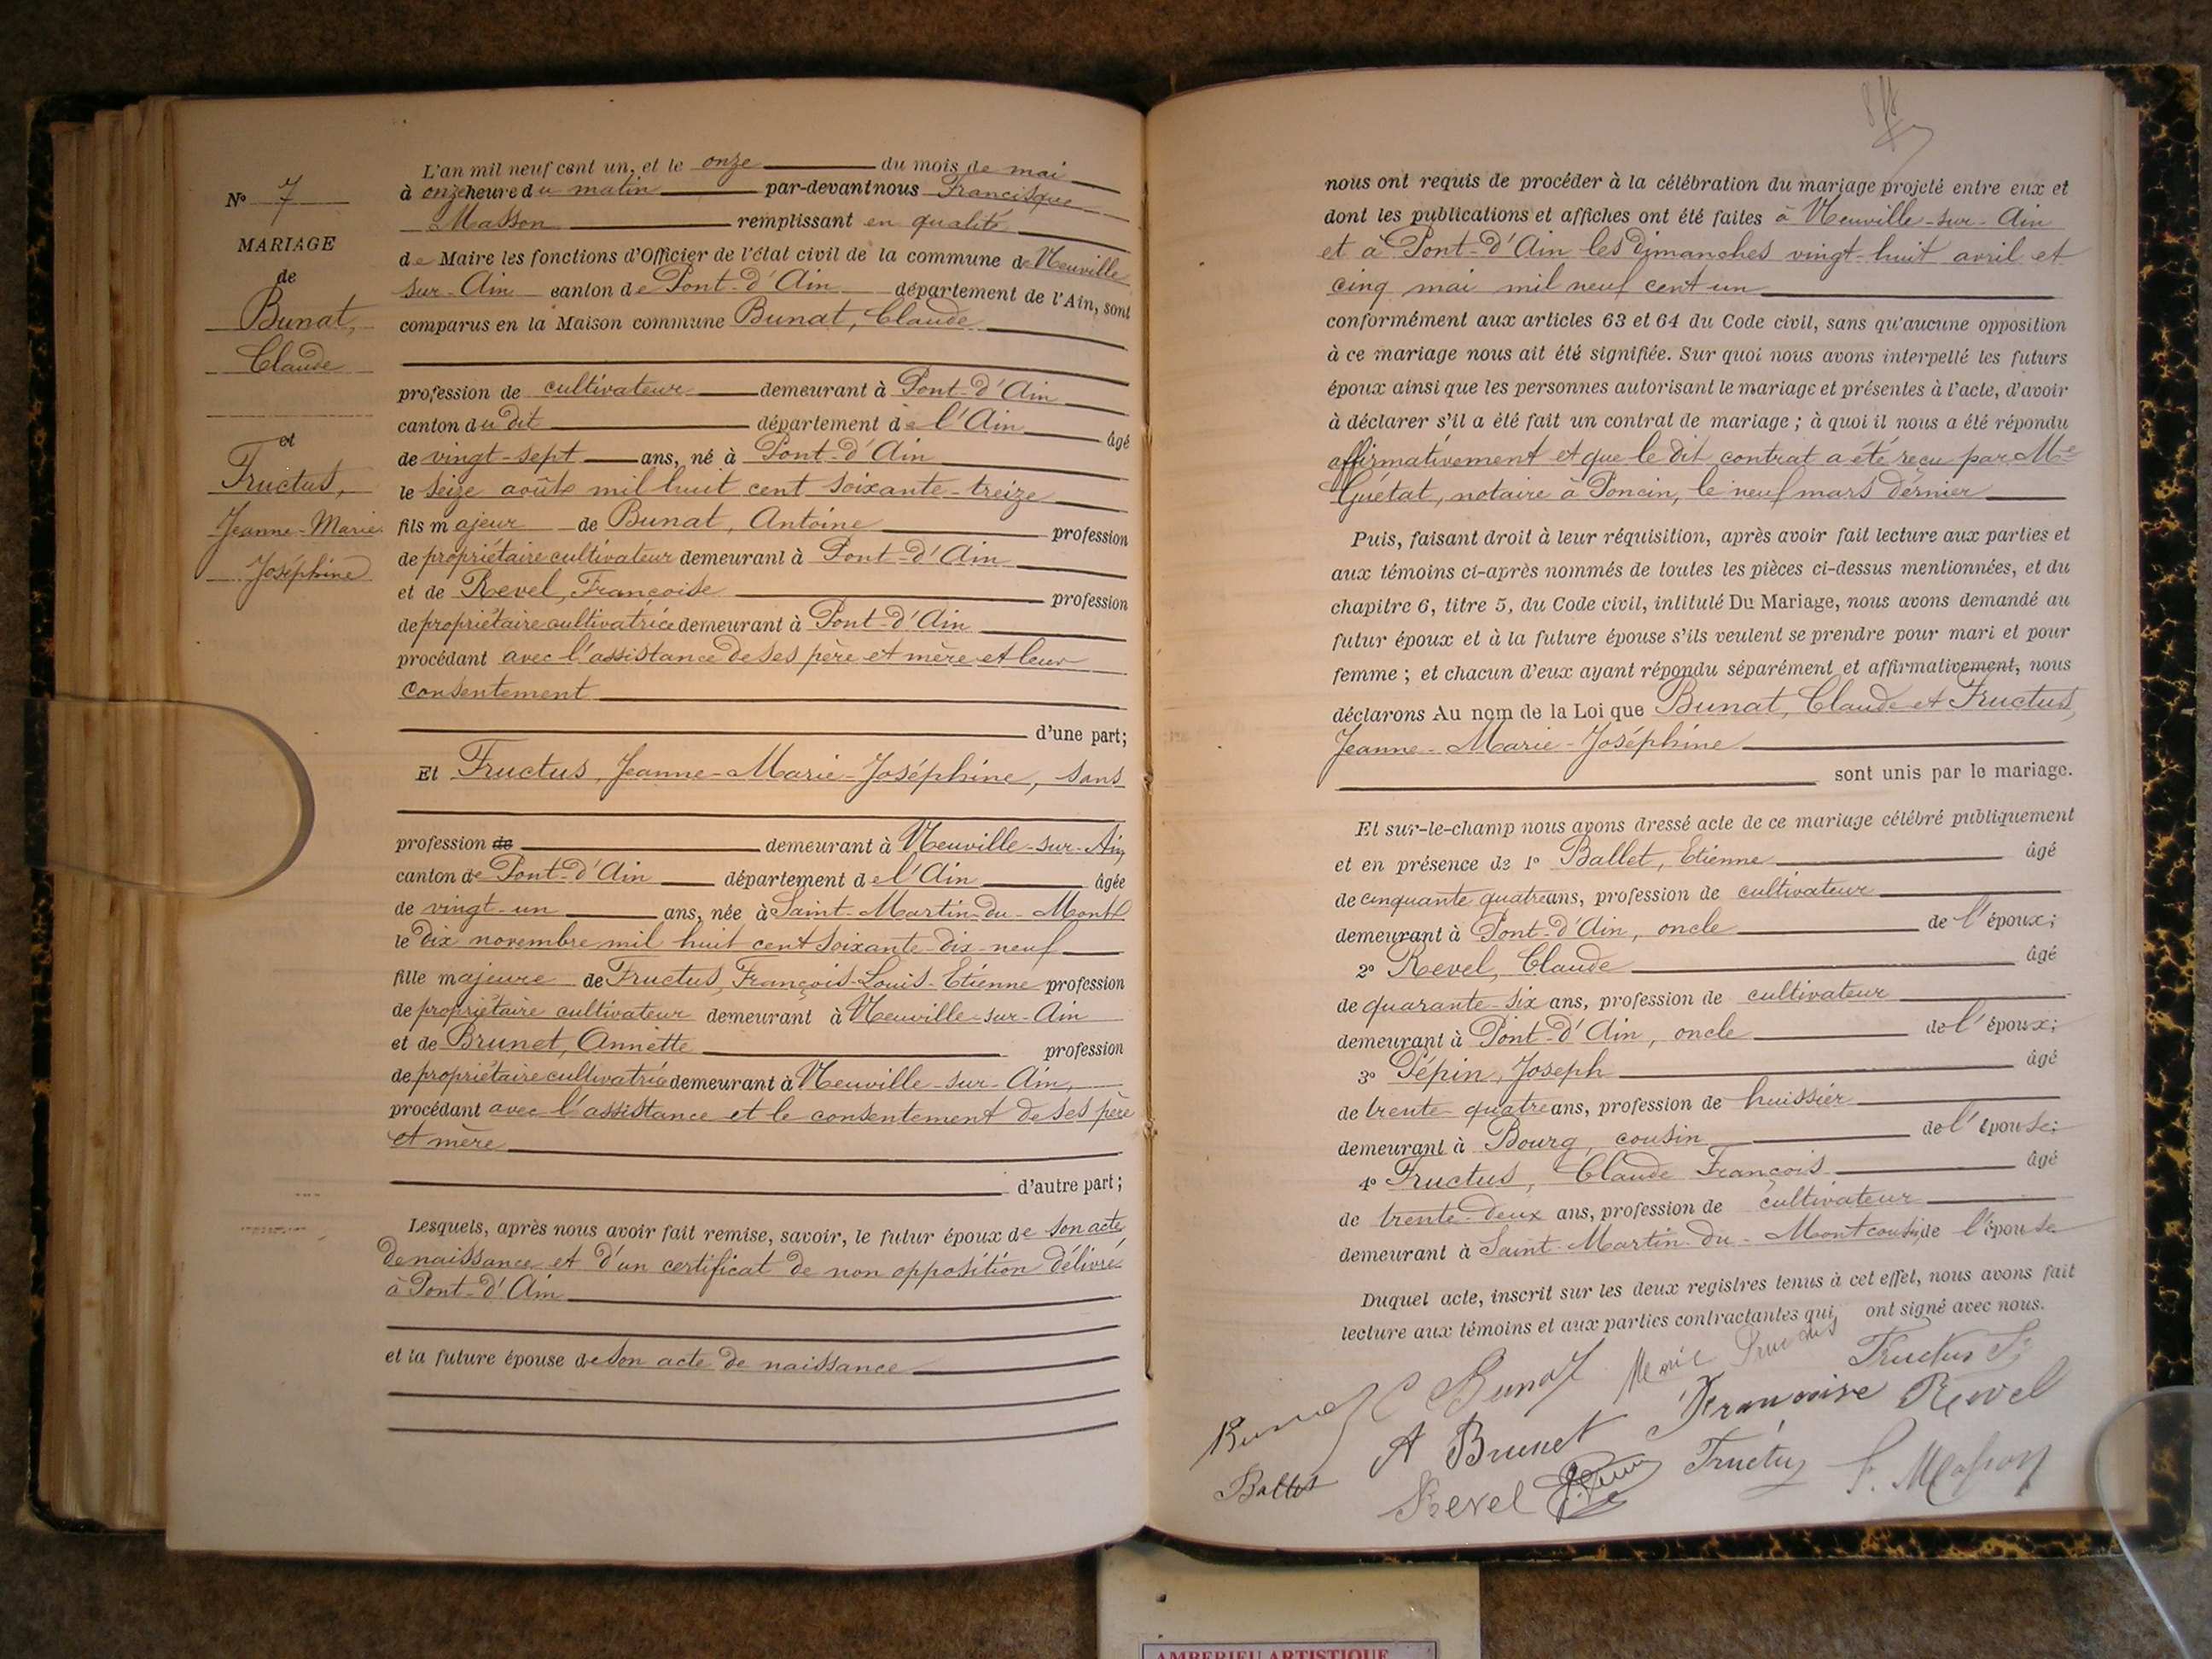 N° 7
MARIAGE
de
Bunat,
Claude
et
Fructus,
Jeanne-Marie
Joséphine
L'an mil neuf cent un, et le onze du mois de mai
à onze heure du matin par-devant nous Francisque
Masson remplissant en qualité
de Maire les fonctions d'Officier de l'état civil de la commune de Neuville
sur-Ain canton de Pont-d'Ain département de l'Ain, sont
comparus en la Maison commune Bunat, Claude
profession de cultivateur demeurant à Pont-d'Ain
canton du dit département de l'Ain âgé
de vingt-sept ans, né à Pont-d'Ain
le seize août mil huit cent soixante-treize
fils majeur de Bunat, Antoine profession
de propriétaire cultivateur demeurant à Pont-d'Ain
et de Revel, Françoise profession
de propriétaire cultivatrice demeurant à Pont-d'Ain
procédant avec l'assistance de ses père et mère et leur
consentement
d'une part;
Et Fructus, Jeanne-Marie-Joséphine, sans
profession de demeurant à Neuville-sur-Ain,
canton de Pont-d'Ain département de l'Ain âgée
de vingt-un ans, née à Saint-Martin-du-Mont
le dix novembre mil huit cent soixante-dix-neuf
fille majeure de Fructus, François-Louis-Etienne profession
de propriétaire cultivateur demeurant à Neuville-sur-Ain
et de Brunet, Annette profession
de propriétaire cultivatrice demeurant à Neuville-sur-Ain,
procédant avec l'assistance et le consentement de ses père
et mère
d'autre part;
Lesquels, après nous avoir fait remise, savoir, le futur époux de son acte
de naissance et d'un certificat de non opposition délivré
à Pont-d'Ain
et la future épouse de son acte de naissance
nous ont requis de procéder à la célébration du mariage projeté entre eux et
dont les publications et affiches ont été faites à Neuville-sur-Ain
et à Pont-d'Ain les dimanches vingt-huit avril et
cinq mai mil neuf cent un
conformément aux articles 63 et 64 du Code civil, sans qu'aucune opposition
à ce mariage nous ait été signifiée. Sur quoi nous avons interpellé les futurs
époux ainsi que les personnes autorisant le mariage et présentes à l'acte, d'avoir
à déclarer s'il a été fait un contrat de mariage ; à quoi il nous a été répondu
affirmativement et que le dit contrat a été reçu par Me
Guétat, notaire à Poncin, le neuf mars dernier
Puis, faisant droit à leur réquisition, après avoir fait lecture aux parties et
aux témoins ci-après nommés de toutes les pièces ci-dessus mentionnées, et du
chapitre 6, titre 5, du Code civil, intitulé Du Mariage, nous avons demandé au
futur époux et à la future épouse s'ils veulent se prendre pour mari et pour
femme ; et chacun d'eux ayant répondu séparément et affirmativement, nous
déclarons Au nom de la Loi que Bunat, Claude et Fructus,
Jeanne-Marie-Joséphine
sont unis par le mariage.
Et sur-le-champ nous avons dressé acte de ce mariage célébré publiquement
et en présence de 1° Ballet, Etienne âgé
de cinquante quatre ans, profession de cultivateur
demeurant à Pont-d'Ain, oncle de l'époux;
2° Revel, Claude âgé
de quarante-six ans, profession de cultivateur
demeurant à Pont-d'Ain, oncle de l'époux;
3° Pépin, Joseph âgé
de trente-quatre ans, profession de huissier
demeurant à Bourg, cousin de l'épouse;
4° Fructus, Claude François âgé
de trente-deux ans, profession de cultivateur
demeurant à Saint-Martin-du-Mont cousin de l'épouse
Duquel acte, inscrit sur les deux registres tenus à cet effet, nous avons fait
lecture aux témoins et aux parties contractantes qui ont signé avec nous.
C Bunat Marie Fructus Fructus
Bunat A Brunet Françoise Revel
Ballet Revel Fructus F. Masson
AMBERIEU ARTISTIQUE